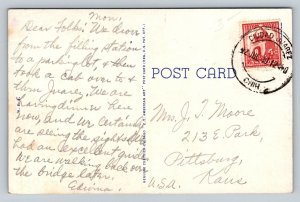 Mon.
Dear Folks: We drove
from the filling station
to a parking lot, & then
took a cab over to &
thru Juarez. We are
having dinner here
now, and we certainly
are seeing the sights &
had an excellent guide.
We are walking back over
the bridge later.
Edwina.
POST CARD
CIUDAD JUAREZ
CHIH
Mrs. J. T. Moore
213 E. Park,
Pittsburg,
Kans
U.S.A.